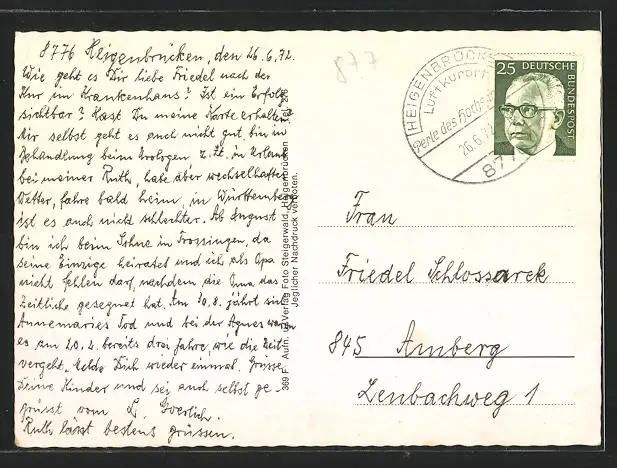 8776 Heigenbrücken, den 26.6.72.
Wie geht es Dir liebe Friedel nach der
Kur im Krankenhaus? Ist ein Erfolg
sichtbar? Hast Du meine Karte erhalten?
Mir selbst geht es auch nicht gut, bin in
Behandlung beim Urologen z. Zt. in Urlaub
bei meiner Ruth, habe aber wechselhaftes
Wetter, fahre bald heim, in Württemberg
ist es auch nicht schlechter. Ab August
bin ich beim Sohne in Trossingen, da
seine Einzige heiratet und ich als Opa
nicht fehlen darf, nachdem die Oma das
Zeitliche gesegnet hat. Am 10.8. jährt sich
Annemaries Tod und bei der Agnes waren
es am 20.2. bereits drei Jahre, wie die Zeit
vergeht. Melde Dich wieder einmal. Grüsse
Deine Kinder und sei auch selbst ge-
grüsst vom L.
Ruth lässt bestens grüssen.
369 F Aufn. u. Verlag Foto Steigerwald, Heigenbrücken
Jeglicher Nachdruck verboten.
877
HEIGENBRÜCKEN
Luftkurort
Perle des Hochsp
26.6.72
877
25 DEUTSCHE
BUNDESPOST
Frau
Friedel Schlossarek
845 Amberg
Lenbachweg 1